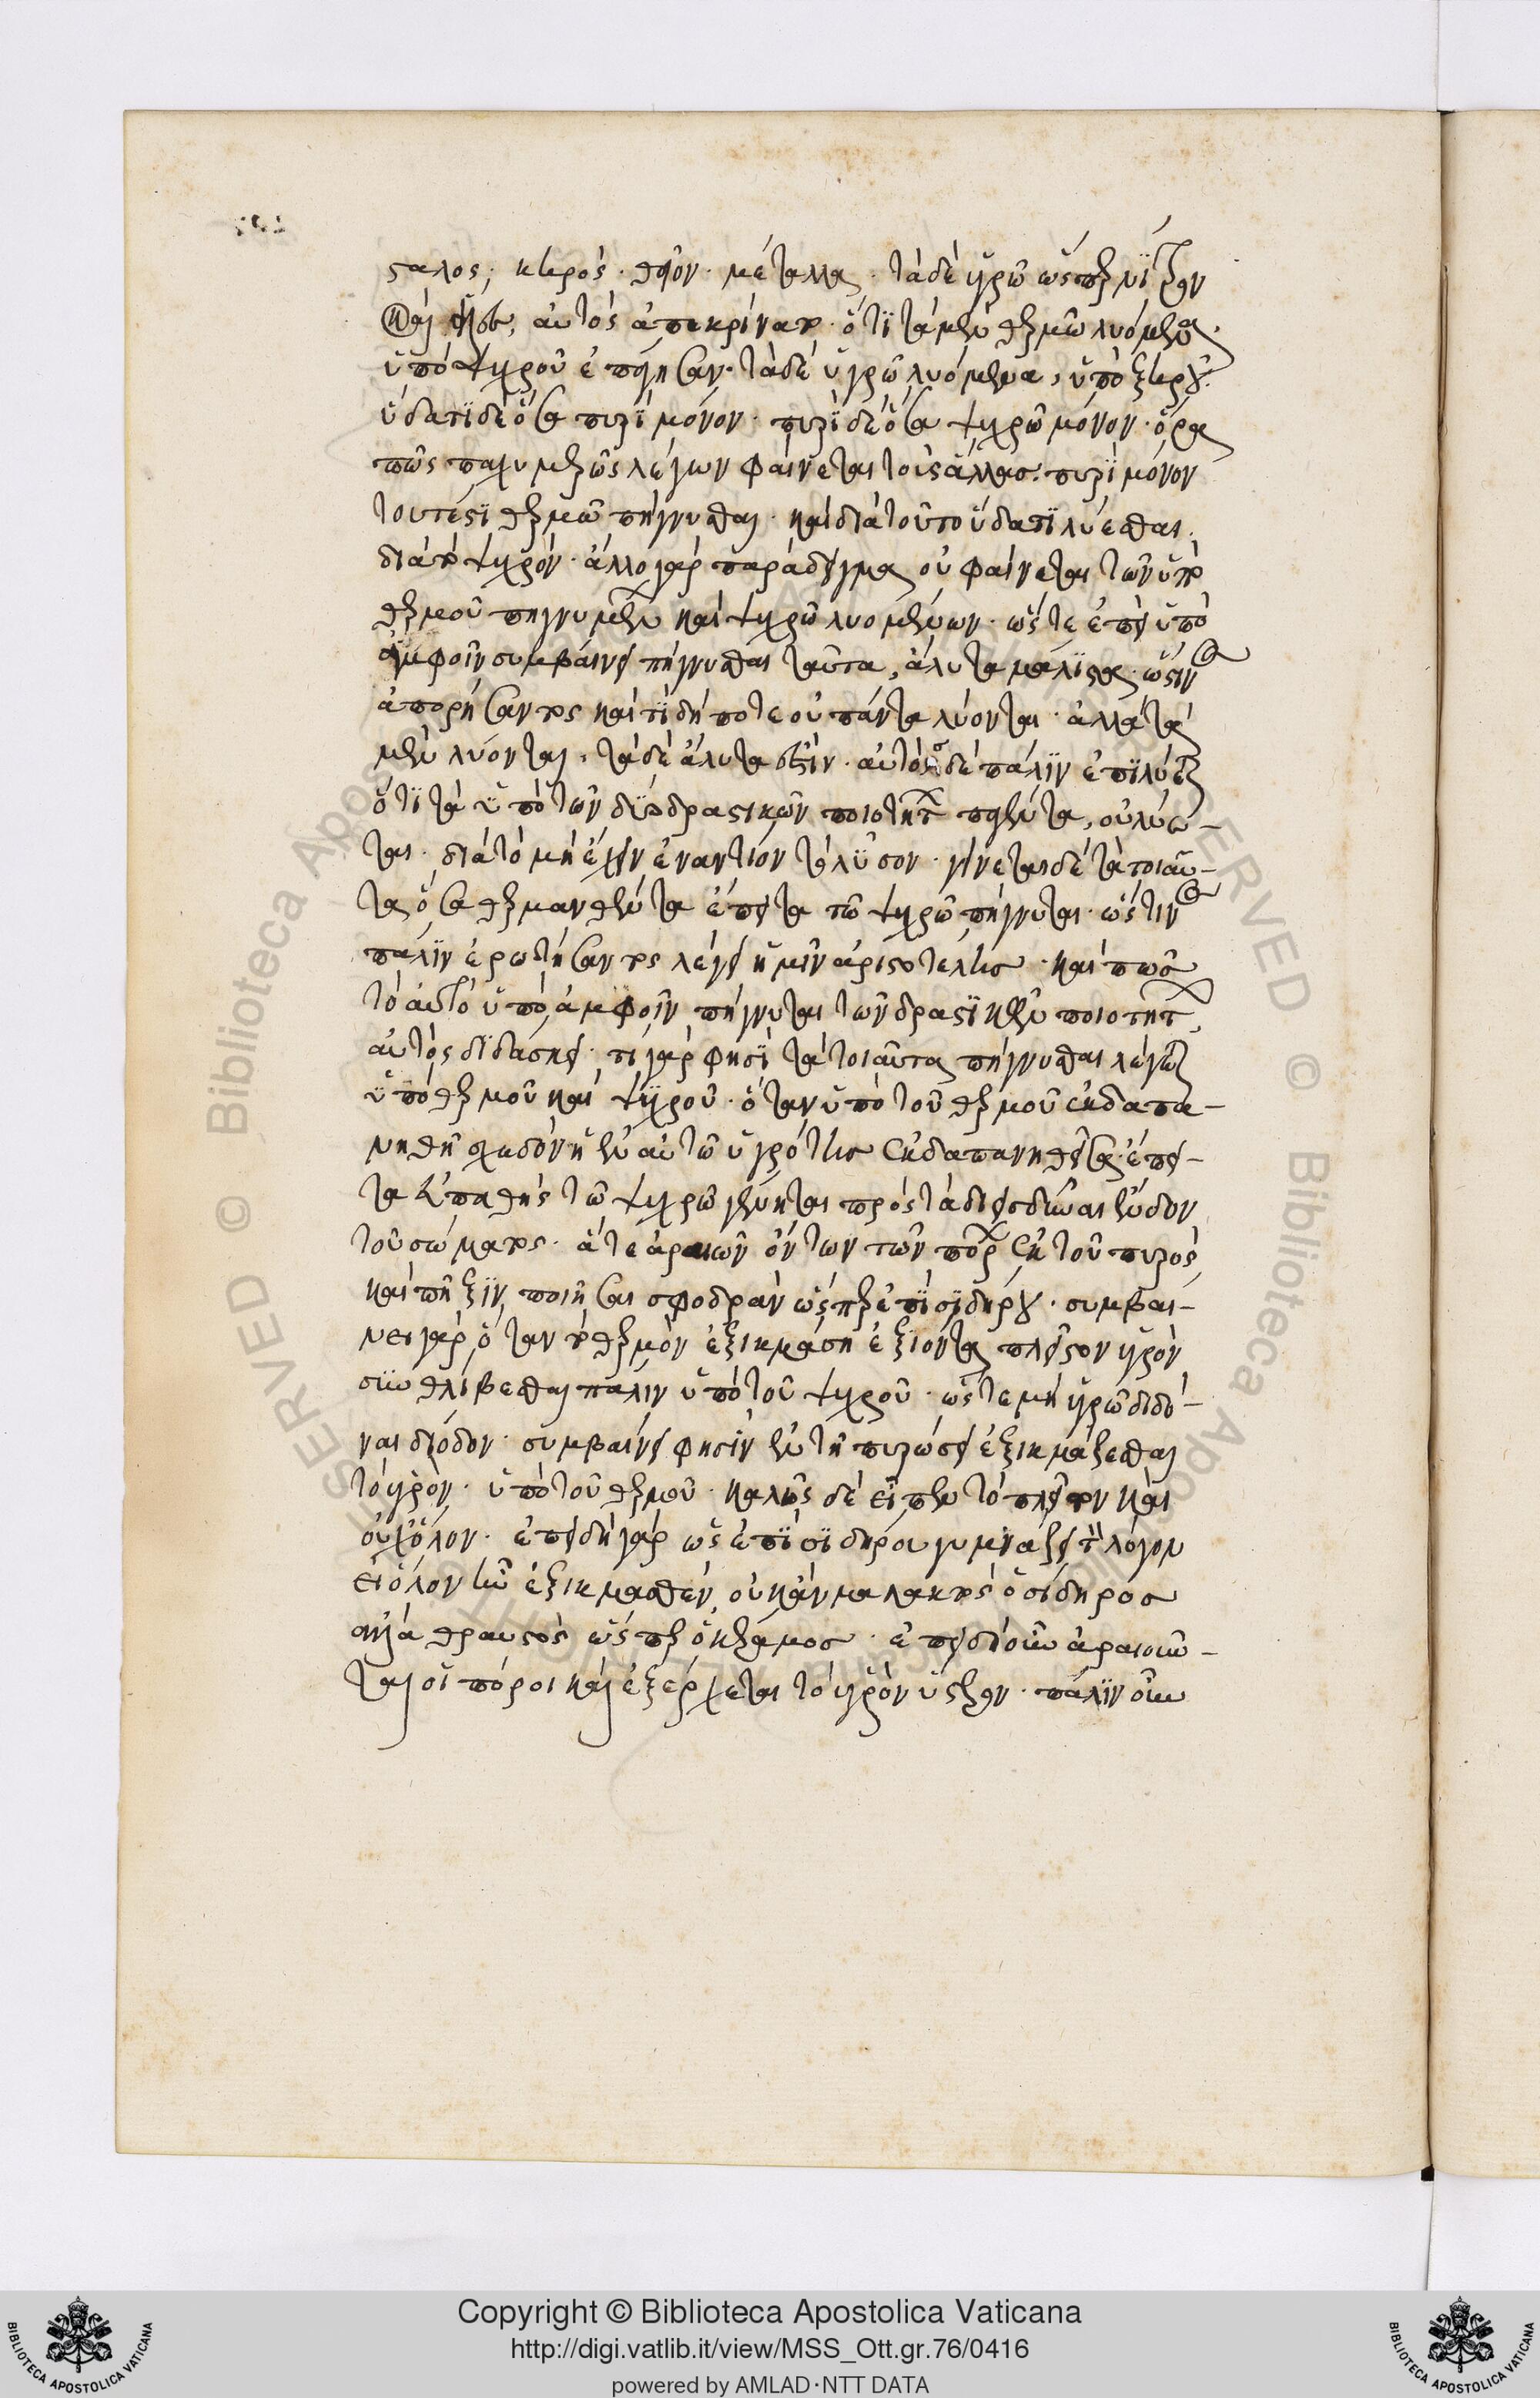 σταλος, κηρός. θεῖον. μέταλλα. τὰ δὲ ὑγρῶ ὥσπερ νίτρον
καὶ ἅλες, αὐτὸς ἀπεκρίνατο. ὅτι τὰ μὲν θερμῶ λυόμενα.
ὑπὸ ψυχροῦ ἐπάγησαν. τὰ δὲ ὑγρῶ λυόμενα, ὑπὸ ξηροῦ.
ὕδατι δὲ ὅσα πυρὶ μόνον. πυρὶ δὲ ὅσα ψυχρῶ μόνον. ὅρα
πῶς παχυμερῶς λέγων φαίνεται τοὺς ἅλας. πυρὶ μόνον
τουτέστι θερμῶ πήγνυσθαι. καὶ διὰ τοῦτο ὕδατι λύεσθαι.
διὰ τὸ ψυχρόν. ἄλλο γὰρ παράδειγμα οὐ φαίνεται τῶν ὑπὸ
θερμοῦ πηγνυμένων καὶ ψυχρῶ λυομένων. ὥστε ἐπεὶ ὑπὸ
ἀμφοῖν συμβαίνει πήγνυσθαι ταῦτα, ἄλυτα μάλιστα. ὥσπερ
ἀπορήσαντος καὶ τί δήποτε οὐ πάντα λύονται. ἀλλὰ τὰ
μὲν λύονται, τὰ δὲ ἄλυτά ἐστιν. αὐτὸς δὲ πάλιν ἐπιλύεται
ὅτι τὰ ὑπὸ τῶν δύο δραστικῶν ποιοτήτων παγέντα, οὐ λύον-
ται. διὰ τὸ μὴ ἔχειν ἐναντίον τὸ λῦσον. γίνεται δὲ τὰ τοιαῦ-
τα ὅσα θερμανθέντα ἔπειτα τῶ ψυχρῶ πήγνυται. ὥς τινος
πάλιν ἐρωτήσαντος λέγει ἡμῖν ἀριστοτέλης. καὶ πῶς
τὸ αὐτὸ ὑπὸ ἀμφοῖν πήγνυται τῶν δραστικῶν ποιοτήτων,
αὐτὸς διδάσκει. τί γάρ φησι τὰ τοιαῦτα πήγνυσθαι λέγω
ὑπὸ θερμοῦ καὶ ψυχροῦ. ὅταν ὑπὸ τοῦ θερμοῦ ἐκδαπα-
νηθῆ σχεδὸν ἡ ἐν αὐτῶ ὑγρότης ἐκδαπανηθεῖσα. ἔπει-
τα εὐπαθὴς τῶ ψυχρῶ γένηται πρὸς τὸ διεσδῦναι ἔνδον
τοῦ σώματος. ἅτε ἀραιῶν ὄντων τῶν πόρων ἐκ τοῦ πυρὸς
καὶ πῆξιν ποιῆσαι σφοδρὰν ὥσπερ ἐπὶ σιδήρου. συμβαί-
νει γὰρ ὅταν τὸ θερμὸν ἐξικμάση ἐξιόντα πλεῖστον ὑγρὸν
συνθλίβεσθαι πάλιν ὑπὸ τοῦ ψυχροῦ. ὥστε μὴ ὑγρῶ διδό-
ναι δίοδον. συμβαίνει φησὶν ἐν τῆ πυρώσει ἐξικμάζεσθαι
τὸ ὑγρὸν. ὑπὸ τοῦ θερμοῦ. καλῶς δὲ εἶπεν τὸ πλεῖστον καὶ
οὐχ ὅλον. ἐπειδὴ γὰρ ὡς ἐπὶ σιδήρου γυμνάζει τὸν λόγον
εἰ ὅλον ἦν ἐξικμασθὲν, οὐκ ἂν μαλακτὸς ὁ σίδηρος
ἀλλὰ θραυστὸς ὥσπερ ὁ κέραμος. ἐπειδὴ οὖν ἀραιοῦν-
ται οἱ πόροι καὶ ἐξέρχεται τὸ ὑγρὸν ὕστερον. πάλιν οὖν
Copyright © Biblioteca Apostolica Vaticana
http://digi.vatlib.it/view/MSS_Ott.gr.76/0416
powered by AMLAD·NTT DATA